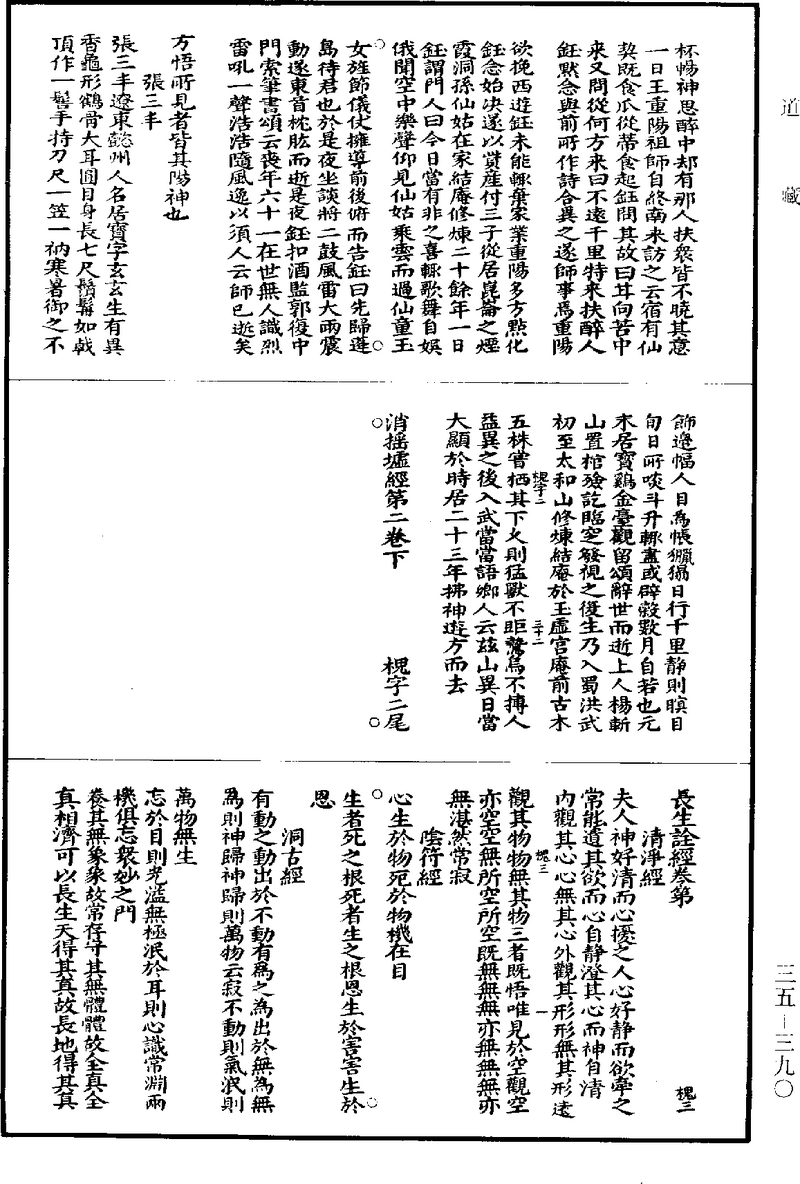 道藏
杯暢神思醉中却有那人扶衆皆不曉其意
一日王重陽祖師自終南來訪之云宿有仙
契既食瓜從蒂食起鈺問其故曰耳向苦中
來又問從何方來曰不遠千里特來扶醉人
鈺默念與前所作詩合異之遂師事焉重陽
欲挽西遊鈺未能輒棄家業重陽多方點化
鈺念始决遂以貲産付三子從居崑崙之煙
霞洞孫仙姑在家結庵修煉二十餘年一日
鈺謂門人曰今日當有非之喜輒歌舞自娛
俄聞空中樂聲仰見仙姑乘雲而過仙童玉
女旌節儀仗擁導前後俯而告鈺曰先歸蓬
島待君也於是夜坐談將二鼓風雷大雨震
動遂東首枕肱而逝是夜鈺扣酒監郭復中
門索筆書頌云喪年六十一在世無人識烈
雷吼一聲浩浩隨風逸以須人云師已逝矣
方悟所見者皆其陽神也
張三丰
張三丰遼東懿州人名居寶字玄玄生有異
香龜形鶴骨大耳圓目身長七尺鬚髯如戟
頂作一髻手持刀尺一笠一衲寒暑御之不
飾邉幅人目為𢃄獵獦日行千里静則瞑目
旬日所啖斗升輒盡或辟穀數月自若也元
末居寶鷄金臺觀留頌辭世而逝上人楊斬
山置棺殮訖臨窆發視之復生乃入蜀洪武
初至太和山修煉結庵於玉虛宫庵前古木
五株嘗栖其下久則猛獸不距鷙鳥不搏人
槐字二
三十二
益異之後入武當當語鄉人云兹山異日當
大顯於時居二十三年拂神遊方而去
消摇墟經第二卷下
槐字二尾
長生詮經卷第
槐三
清淨經
夫人神好清而心擾之人心好静而欲牽之
常能遣其欲而心自静澄其心而神自清
内觀其心心無其心外觀其形形無其形遠
槐三
一
觀其物物無其物三者既悟唯見於空觀空
亦空空無所空所空既無無無亦無無無亦
無湛然常寂
陰符經
心生於物死於物機在目
生者死之根死者生之根恩生於害害生於
恩
洞古經
有動之動出於不動有為之為出於無為無
為則神歸神歸則萬物云寂不動則氣泯則
萬物無生
忘於目則光溢無極泯於耳則心識常淵兩
機俱忘衆妙之門
養其無象象故常存守其無體體故全真全
真相濟可以長生天得其真故長地得其真
三五－三九〇